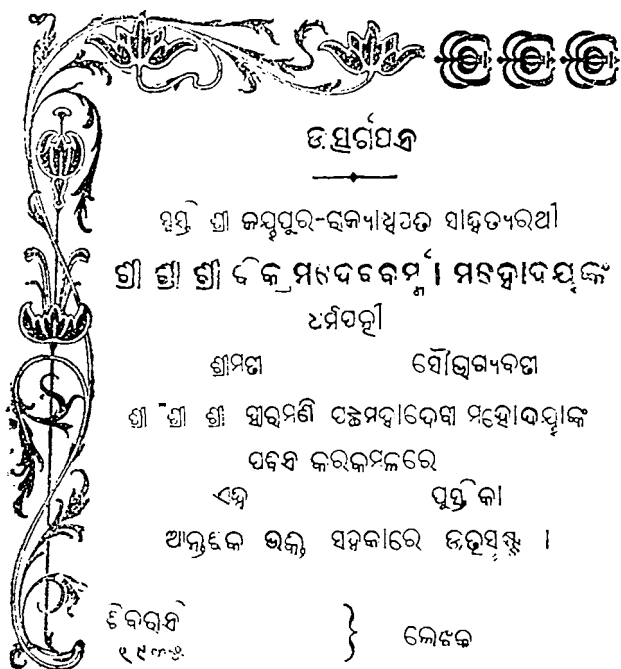 ଉତ୍ସର୍ଗପତ୍ର
ସ୍ୱସ୍ତି ଶ୍ରୀ ଜୟପୁର-ରାଜ୍ୟାଧିପତି ସାହିତ୍ୟରଥୀ
ଶ୍ରୀ ଶ୍ରୀ ଶ୍ରୀ ବିକ୍ରମଦେବବର୍ମ୍ମା ମହୋଦୟଙ୍କ
ଧର୍ମପତ୍ନୀ
ଶ୍ରୀମତୀ ସୌଭାଗ୍ୟବତୀ
ଶ୍ରୀ ଶ୍ରୀ ଶ୍ରୀ ସ୍ତ୍ରୀରମଣି ପଟ୍ଟମହାଦେବୀ ମହୋଦୟାଙ୍କ
ପବିତ୍ର କରକମଳରେ
ଏହି ପୁସ୍ତିକା
ଆନ୍ତରିକ ଭକ୍ତି ସହକାରେ ଉତ୍ସୃଷ୍ଟ ।
ଶିବରାତ୍ରି
ଲେଖକ